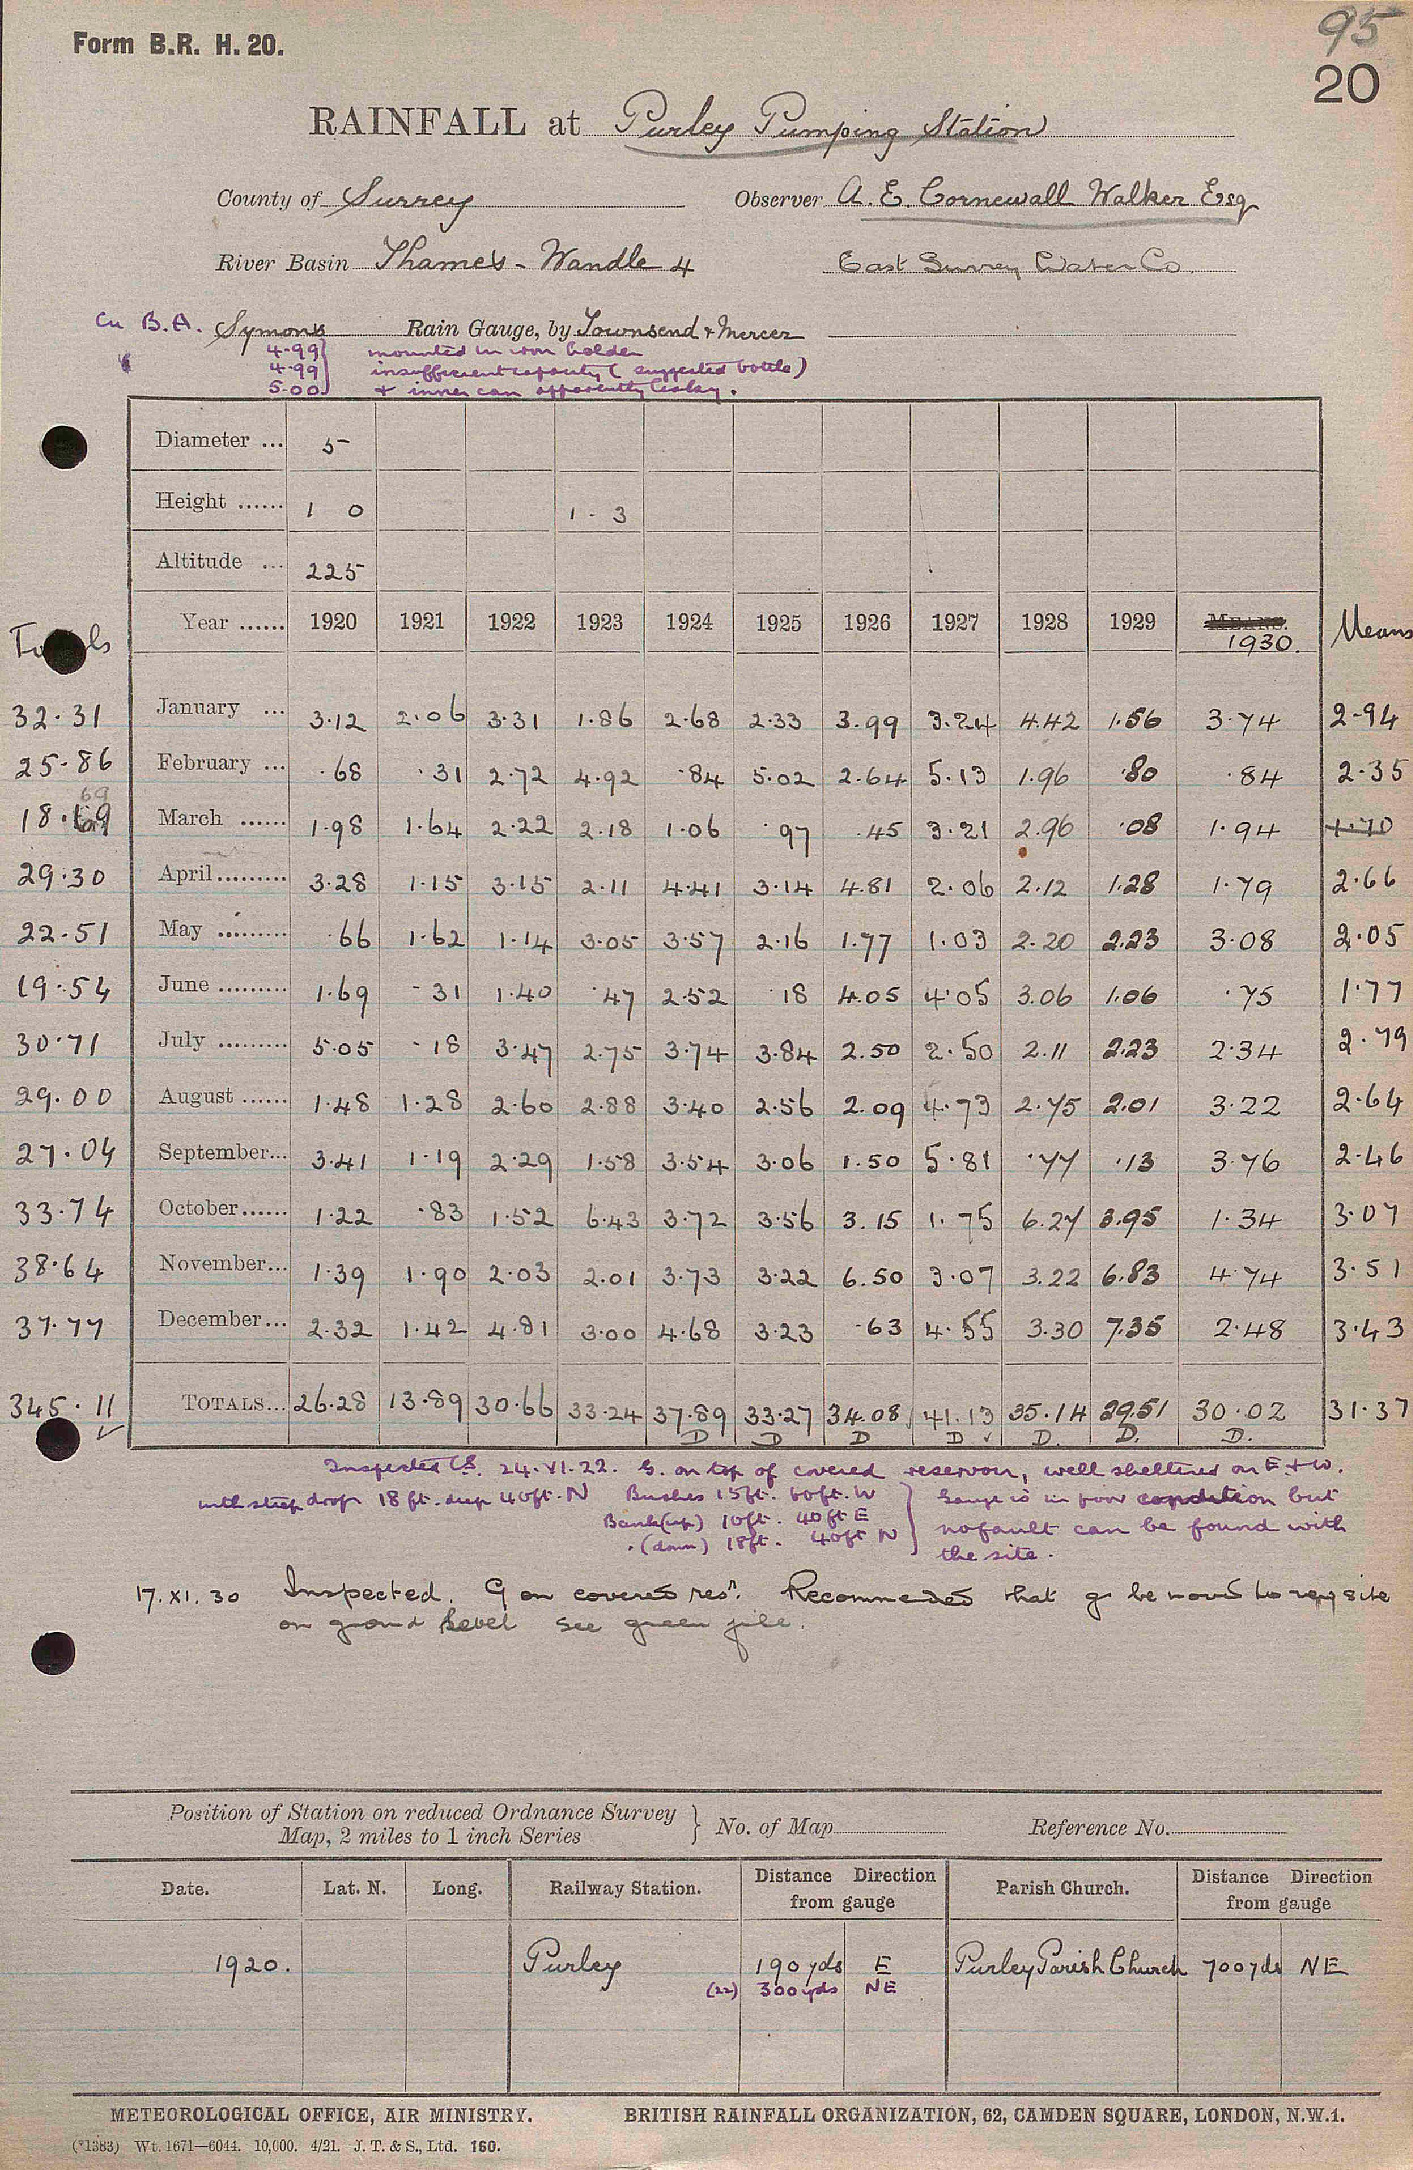 95
Form B.R. H. 20.
20
RAINFALL at Purley Pumping Station
County of Surrey Observer A. E. Cornewall Walker Esq
River Basin Thames - Wandle 4 East Surrey Water Co.
Cu B.A. Symons Rain Gauge, by Townsend & Mercer
4.99 mounted in iron holder
4.99 insufficient capacity (suggested bottle)
5.00 & inner can apparently leaky.
Diameter ... 5
Height ...... 1 0 1 - 3
Altitude ... 225
Totals Year ...... 1920 1921 1922 1923 1924 1925 1926 1927 1928 1929 MEANS. 1930. Means
32.31 January ... 3.12 2.06 3.31 1.86 2.68 2.33 3.99 3.24 4.42 1.56 3.74 2.94
25.86 February ... .68 .31 2.72 4.92 .84 5.02 2.64 5.13 1.96 .80 .84 2.35
18.69 March ...... 1.98 1.64 2.22 2.18 1.06 .97 .45 3.21 2.96 .08 1.94 1.70
29.30 April ......... 3.28 1.15 3.15 2.11 4.41 3.14 4.81 2.06 2.12 1.28 1.79 2.66
22.51 May ......... .66 1.62 1.14 3.05 3.57 2.16 1.77 1.03 2.20 2.23 3.08 2.05
19.54 June ......... 1.69 .31 1.40 .47 2.52 .18 4.05 4.05 3.06 1.06 .75 1.77
30.71 July ......... 5.05 .18 3.47 2.75 3.74 3.84 2.50 2.50 2.11 2.23 2.34 2.79
29.00 August ...... 1.48 1.28 2.60 2.88 3.40 2.56 2.09 4.73 2.75 2.01 3.22 2.64
27.04 September... 3.41 1.19 2.29 1.58 3.54 3.06 1.50 5.81 .77 .13 3.76 2.46
33.74 October...... 1.22 .83 1.52 6.43 3.72 3.56 3.15 1.75 6.27 3.95 1.34 3.07
38.64 November... 1.39 1.90 2.03 2.01 3.73 3.22 6.50 3.07 3.22 6.83 4.74 3.51
37.77 December... 2.32 1.42 4.81 3.00 4.68 3.23 .63 4.55 3.30 7.35 2.48 3.43
345.11 TOTALS... 26.28 13.89 30.66 33.24 37.89 33.27 34.08 41.13 35.14 29.51 30.02 31.37
D D D D ✓ D. D. D.
Inspected 24.XI.22. G. on top of covered reservoir, well sheltered on E. & W.
with steep drop 18 ft. deep 40ft. N Bushes 15ft. 60ft. W Gauge is in poor condition but
Bank (up) 10ft. 40ft E no fault can be found with
" (down) 18ft. 40ft N the site.
17.XI.30 Inspected. G on covered resr. Recommended that g be moved to site
on ground level see green file.
Position of Station on reduced Ordnance Survey
Map, 2 miles to 1 inch Series } No. of Map Reference No.
Date. Lat. N. Long. Railway Station. Distance Direction from gauge Parish Church. Distance Direction from gauge
1920. Purley 190 yds E Purley Parish Church 700 yds NE
(22) 300 yds NE
METEOROLOGICAL OFFICE, AIR MINISTRY. BRITISH RAINFALL ORGANIZATION, 62, CAMDEN SQUARE, LONDON, N.W.1.
(*1383) Wt. 1671—6044. 10,000. 4/21. J. T. & S., Ltd. 160.